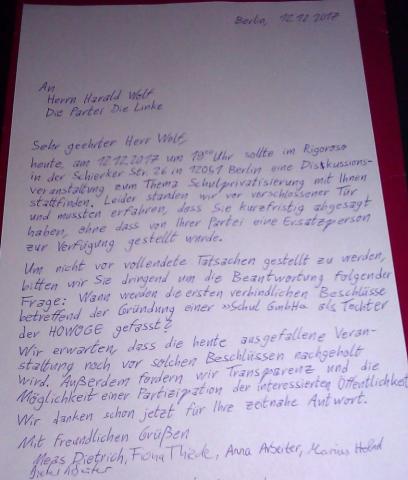 Berlin, 12.12.2017
An
Herrn Harald Wolf
Die Partei Die Linke
Sehr geehrter Herr Wolf,
heute, am 12.12.2017 um 19⁰⁰ Uhr sollte im Rigoroso
in der Schierker Str. 26 in 12051 Berlin eine Diskussions-
veranstaltung zum Thema Schulprivatisierung mit Ihnen
stattfinden. Leider standen wir vor verschlossener Tür
und mussten erfahren, dass Sie kurzfristig abgesagt
haben, ohne dass von Ihrer Partei eine Ersatzperson
zur Verfügung gestellt wurde.
Um nicht vor vollendete Tatsachen gestellt zu werden,
bitten wir Sie dringend um die Beantwortung folgender
Frage: Wann werden die ersten verbindlichen Beschlüsse
betreffend der Gründung einer »Schul GmbH« als Tochter
der HOWOGE gefasst?
Wir erwarten, dass die heute ausgefallene Veran-
staltung noch vor solchen Beschlüssen nachgeholt
wird. Außerdem fordern wir Transparenz und die
Möglichkeit einer Partizipation der interessierten Öffentlichkeit.
Wir danken schon jetzt für Ihre zeitnahe Antwort.
Mit freundlichen Grüßen
Dietrich, Fiona Thiede, Anna Arbeiter, Marius